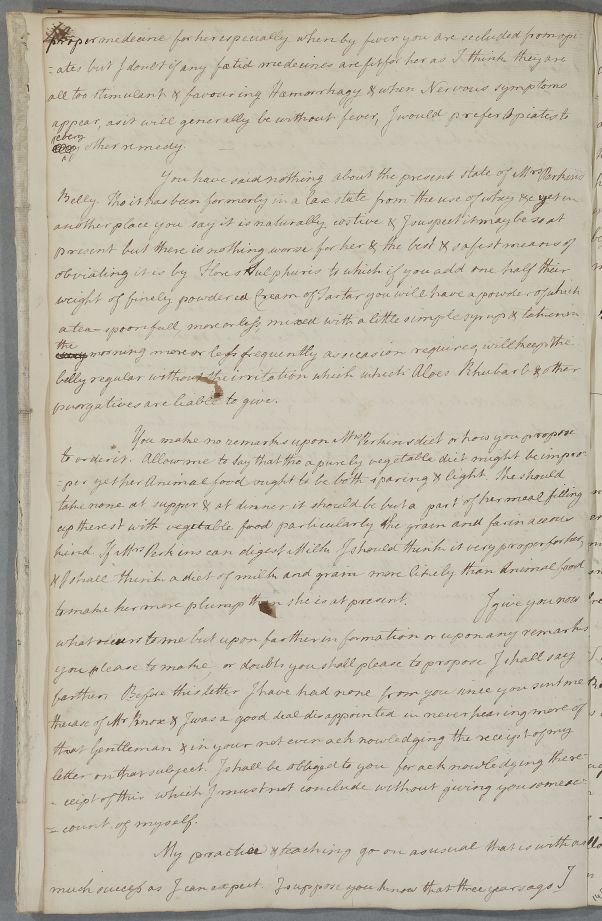 proper medecine for her especially when by fever you are secluded from opi
=ates but I doubt if any fœtid medecines are fit for her as I think they are
all too stimulant & favouring Hæmorrhagy & when Nervous symptoms
appear, as it will generally be without fever, I would prefer Opiates to
every
other remedy.
You have said nothing about the present state of Mrs Perkins's
Belly. Tho it has been formerly in a lax state from the use of whey &c yet in
another place you say it is naturally costive & I suspect it may be so at
present but there is nothing worse for her & the best & safest means of
obviating it is by Flores Sulphuris to which if you add one half their
weight of finely powdered Cream of Tartar you will have a powder of which
a tea=spoonfull more or less, mixed with a little simple syrup & taken in
the
morning more or less frequently as occasion requires, will keep the
belly regular without the irritation which which Aloes Rhubarb & other
purgatives are liable to give.
You make no remarks upon Mrs Perkins diet or how you propose
to order it. Allow me to say that tho a purely vegetable diet might be impro
=per yet her Animal food ought to be both sparing & light. She should
take none at supper & at dinner it should be but a part of her meal filling
up the rest with vegetable food particularly the grain and farinaceous
kind. If Mrs Perkins can digest Milk I should think it very proper for her,
& I shall think a diet of milk and grain more likely than Animal food
to make her more plump than she is at present. I give you now
what occurs to me but upon farther information or upon any remarks
you please to make, or doubts you shall please to propose I shall say
farther. Before this letter I have had none from you since you sent me
the case of Mr Knox & I was a good deal disappointed in never hearing more of
that Gentleman & in your not even acknowledging the receipt of my
letter on that subject. I shall be obliged to you for acknowledging the re=
=ceipt of this which I must not conclude without giving you some ac=
=count of myself.
My practice & teaching go on as usual that is with as
much success as I can expect. I suppose you know that three years ago I